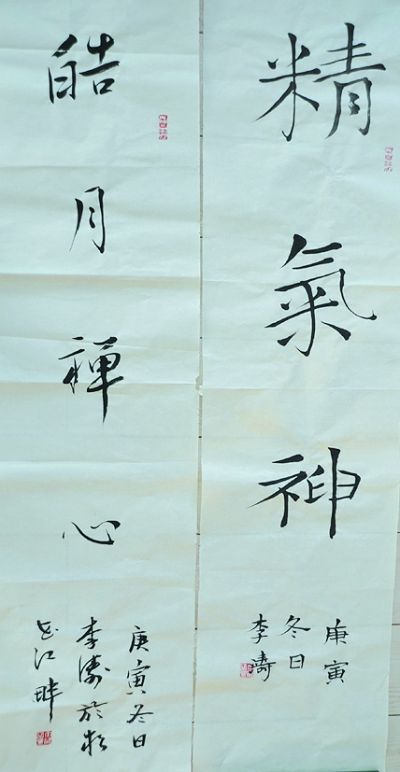 精氣神
庚寅
冬日
李濤
皓月禪心
庚寅冬日
李濤於松
花江畔